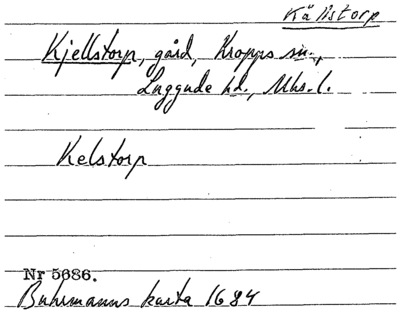 Källstorp
Kjellstorp, gård, Kropps sn.,
Luggude hd., Mhs. l.
Kelstorp
Nr 5686.
Buhrmanns karta 1684